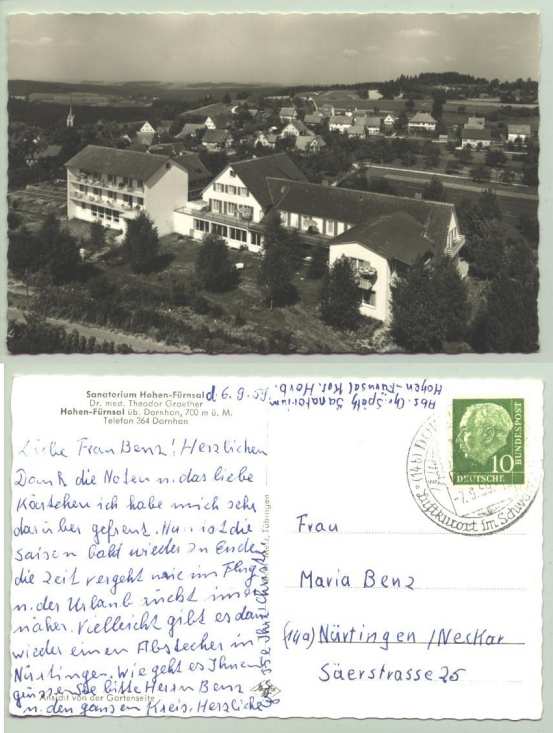 Sanatorium Hohen-Fürnsal
Dr. med. Theodor Graether
Hohen-Fürnsal üb. Dornhan, 700 m ü. M.
Telefon 364 Dornhan
d. 6.9.59.
Abs. Chr. Späth Sanatorium
Hohen-Fürnsal Kr. Horb.
Liebe Frau Benz! Herzlichen
Dank die Noten u. das liebe
Kärtchen ich habe mich sehr
darüber gefreut. Nun ist die
Saison bald wieder zu Ende
die Zeit vergeht wie im Flug
u. der Urlaub rückt immer
näher. Vielleicht gibt es dann
wieder einen Abstecher in
Nürtingen. Wie geht es Ihnen
grüssen Sie bitte Herrn Benz
u. den ganzen Kreis. Herzliche
Ansicht von der Gartenseite
Tübingen
10
DEUTSCHE
BUNDESPOST
Luftkurort im Schwa
Frau
Maria Benz
(14a) Nürtingen/Neckar
Säerstrasse 25